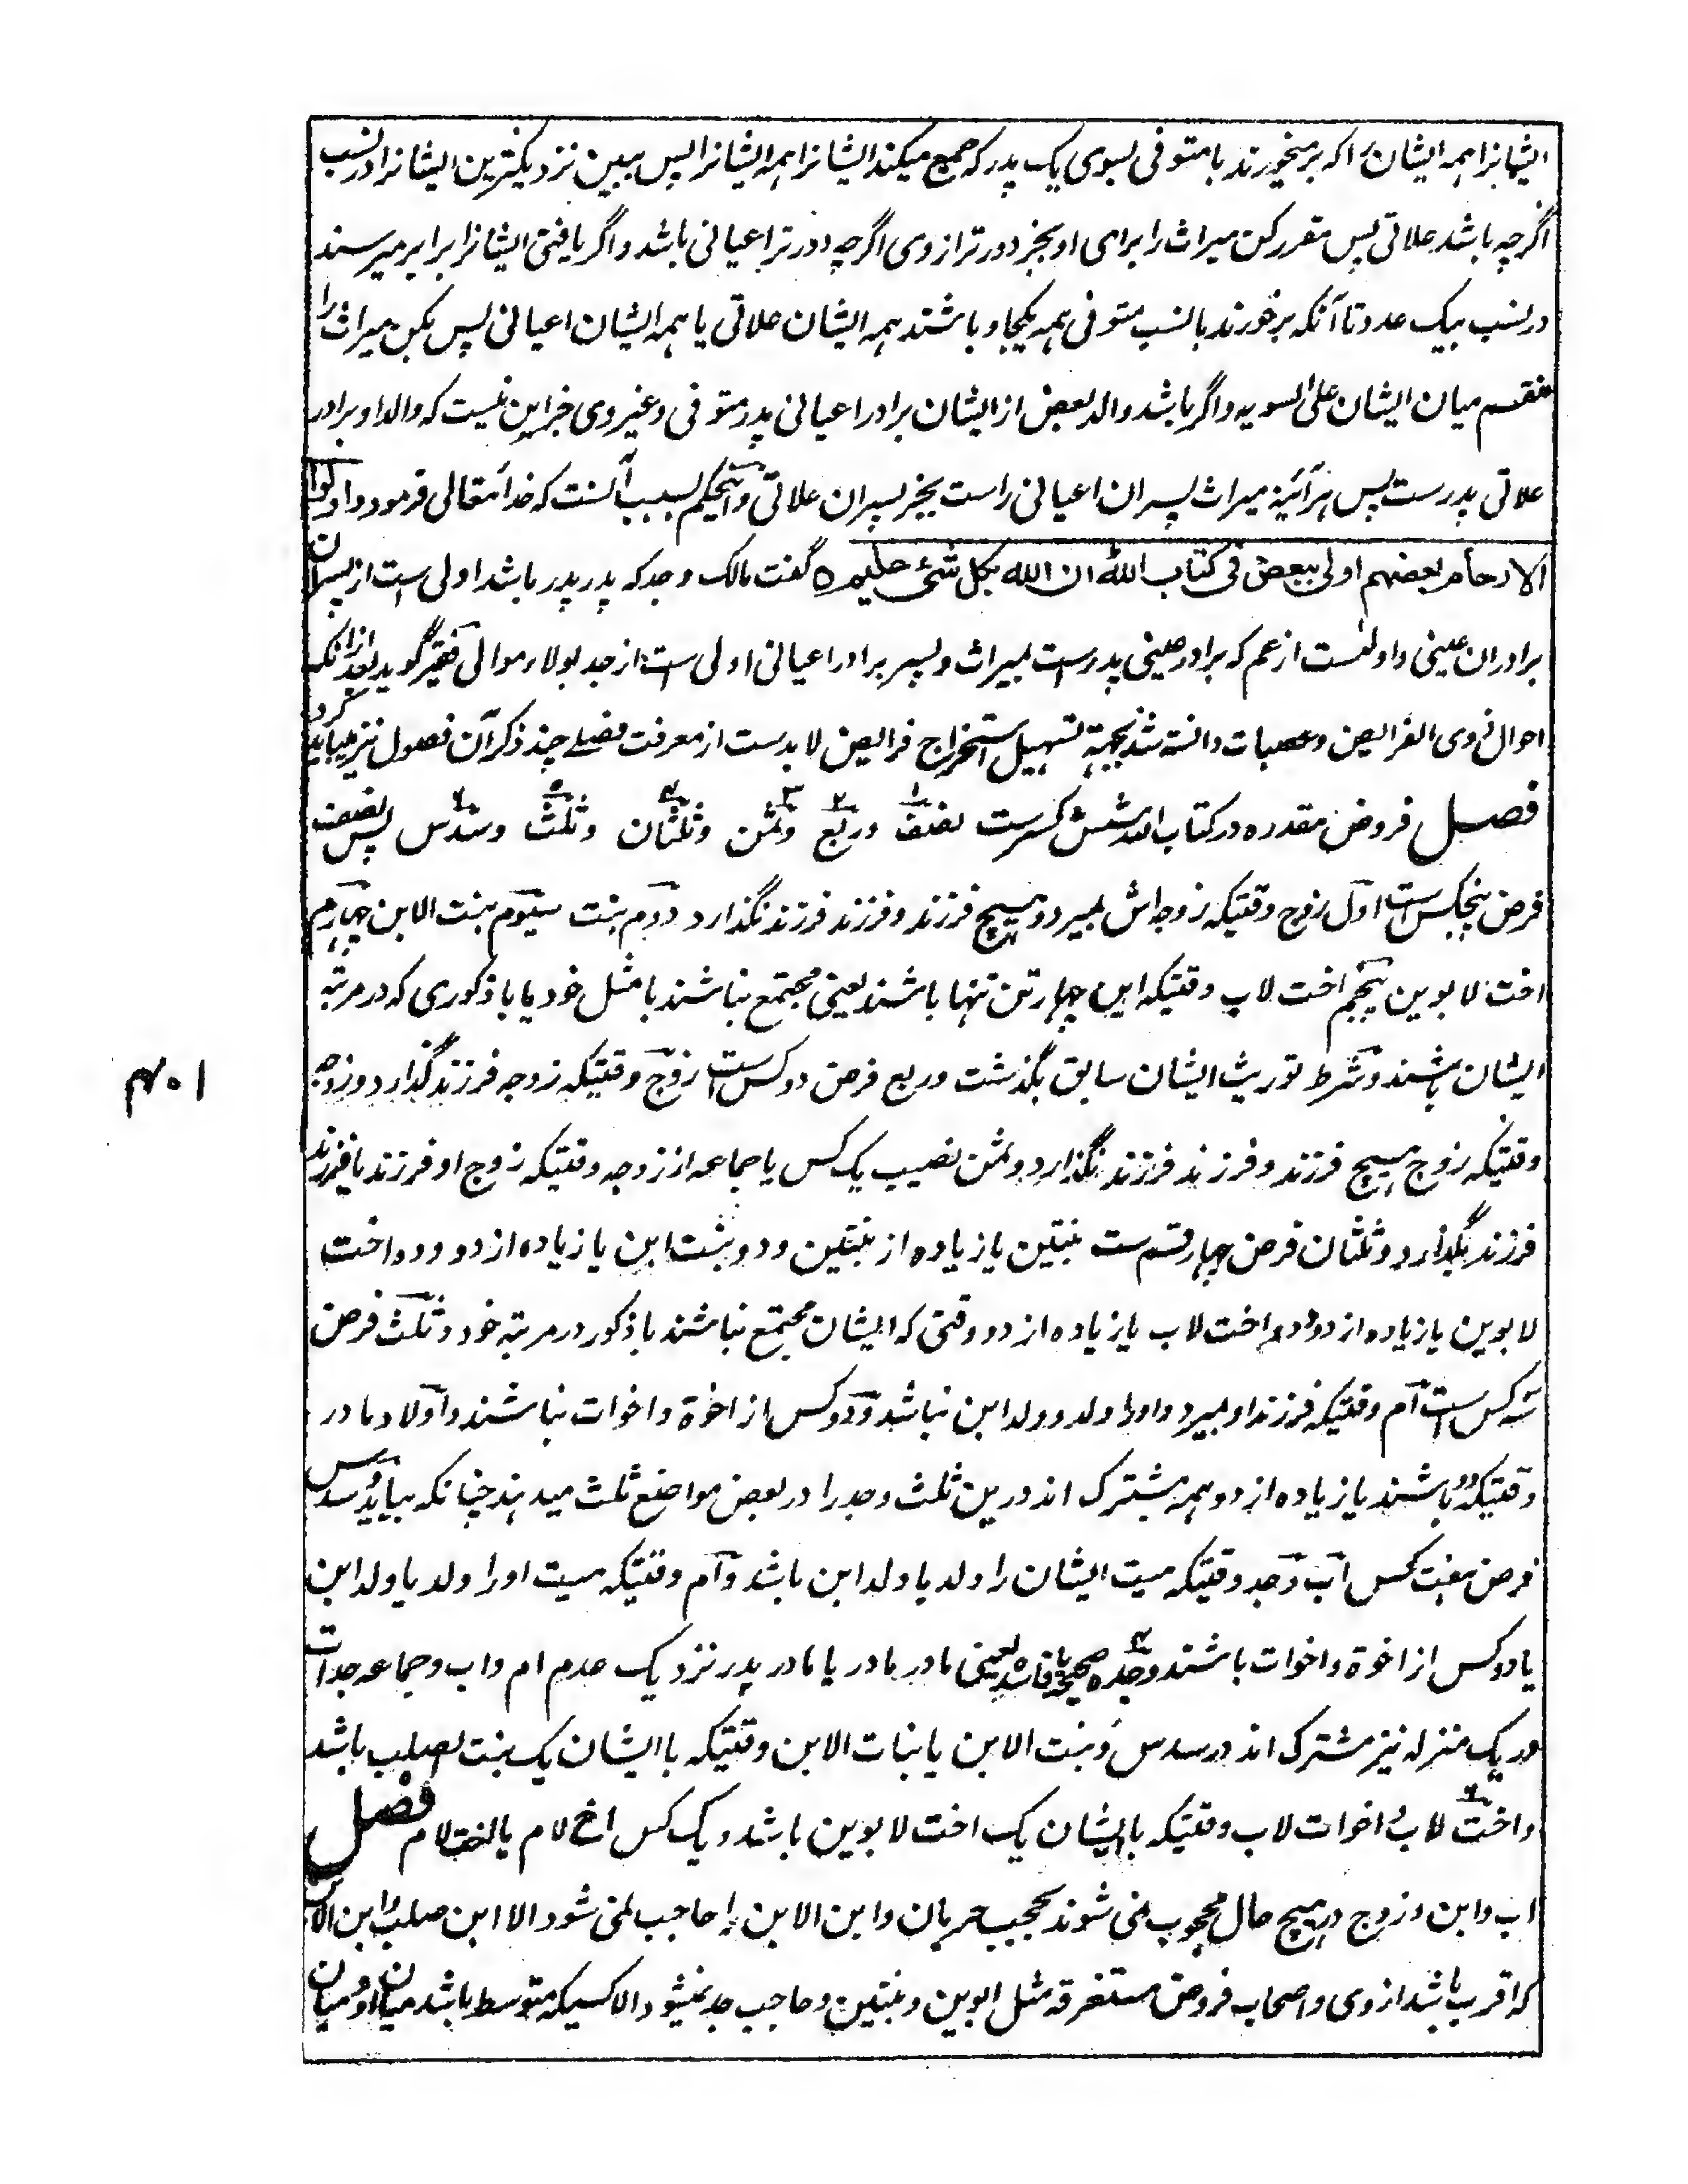 ایشانرا همه ایشان را که برمیخورند با متوفی بسوی یک پدر که جمع میکند ایشانرا همه ایشانرا پس ببین نزدیکترین ایشانرا در نسب
اگرچه باشد علاتی پس مقرر کن میراث را برای او بجز دورتر از وی اگرچه دورتر اعیانی باشد و اگر یافتی ایشانرا برابر میرسند
در نسب بیک عدد تا آنکه برخورند با نسب متوفی همه یکجا و باشند همه ایشان علاتی یا همه ایشان اعیانی پس بکن میراث را
منقسم میان ایشان علی السویه و اگر باشد والد بعض از ایشان برادر اعیانی پدر متوفی و غیر وی جز این نیست که والد او برادر
علاتی پدرست پس هرآئینه میراث پسران اعیانی راست بجز پسران علاتی و اینحکم بسبب آنست که خدا تعالی فرمود واولوا
الارحام بعضهم اولی ببعض فی کتاب الله ان الله بکل شیٔ علیم ه گفت مالک و جد که پدر پدر باشد اولی ست از پسران
برادران عینی و اولیٰست از عم که برادر عینی پدرست بمیراث و پسر برادر اعیانی اولی ست از جد بولاء موالی فقیر گوید بعد ازانکه
احوال ذوی الفرایض و عصبات دانسته شد بجهة تسهیل استخراج فرایض لابدست از معرفت فصلے چند ذکر آن فصول نیز میباید کرد
فصل فروض مقدره در کتاب الله شش کسرست نصف ۱ و ربع ۲ و ثمن ۳ و ثلثان ۴ و ثلث ۵ و سدس ۶ پس نصف
فرض پنجکس است اول زوج وقتیکه زوجه اش بمیرد و هیچ فرزند و فرزند فرزند نگذارد دوم بنت سیوم بنت الابن چهارم
اخت لابوین پنجم اخت لاب وقتیکه این چهار تن تنها باشند یعنی مجتمع نباشند با مثل خود یا با ذکوری که در مرتبه
ایشان باشند و شرط توریث ایشان سابق بگذشت و ربع فرض دو کس است زوج وقتیکه زوجه فرزند گذارد و زوجه
وقتیکه زوج هیچ فرزند و فرزند فرزند نگذارد و ثمن نصیب یک کس یا جماعه از زوجه وقتیکه زوج او فرزند یا فرزند
فرزند بگذارد و ثلثان فرض چهار قسم ست بنتین یا زیاده از بنتین و دو بنت ابن یا زیاده از دو و دو اخت
لابوین یا زیاده از دو و دو اخت لاب یا زیاده از دو وقتی که ایشان مجتمع نباشند با ذکور در مرتبه خود و ثلث فرض
سه کس است ام وقتیکه فرزند او بمیرد و اورا ولد و ولد ابن نباشد و دو کس از اخوة و اخوات نباشند و اولاد مادر
وقتیکه دو باشند یا زیاده از دو همه مشترک اند درین ثلث و جد را در بعض مواضع ثلث میدهند چنانکه بیاید و سدس
فرض هفت کس اب و جد وقتیکه میت ایشان را ولد یا ولد ابن باشد و ام وقتیکه میت اورا ولد یا ولد ابن
یا دو کس از اخوة و اخوات باشند و جده ۴ صحیحه یا فاسده یعنی مادر مادر یا مادر پدر نزدیک عدم ام و اب و جماعه جدات
در یک منزله نیز مشترک اند در سدس و بنت الابن یا بنات الابن وقتیکه با ایشان یک بنت لصلب باشد
و اخت ۶ لاب و اخوات لاب وقتیکه با ایشان یک اخت لابوین باشد و یک کس اخ لام یا اخت لام فصل
اب و ابن و زوج در هیچ حال محجوب نمی شوند بحجب حرمان و ابن الابن را حاجب نمی شود الا ابن صلب و ابن الابن
که اقرب باشد از وی و اصحاب فروض مستغرقه مثل ابوین و بنتین و حاجب جد نمیشود الا کسیکه متوسط باشد میان او و میان
۴۰۱